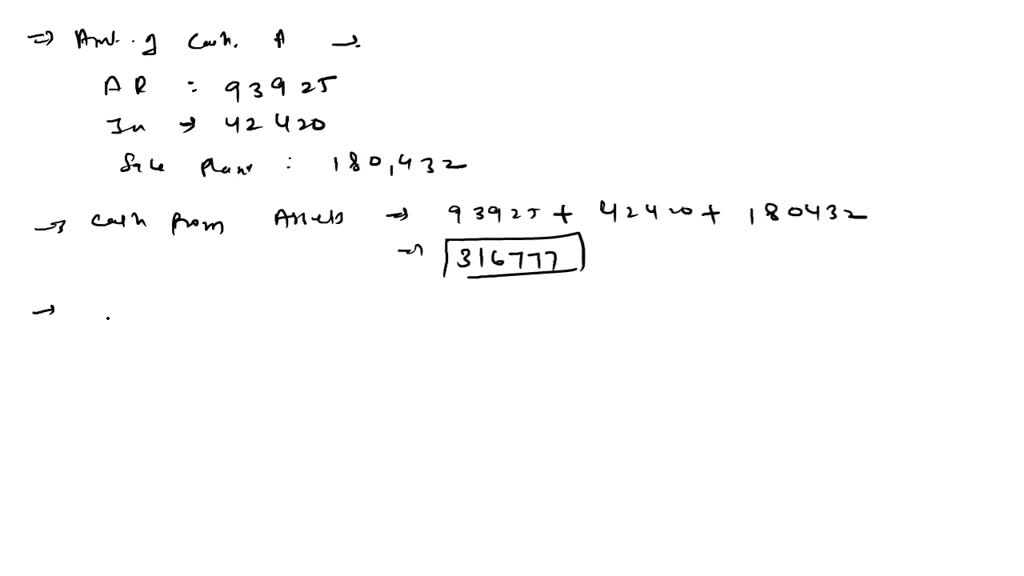 ⇒ Amt. of Cash. A →
AR : 93925
In → 42420
Sale Plant : 180,432
→ Cash from Assets → 93925 + 42420 + 180432
→ 316777
→ .